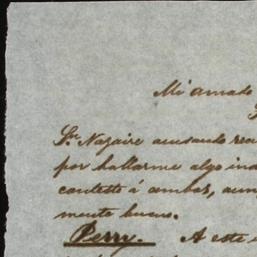 Mi amado
Sr. Nazaire acusando rec
por hallarme algo ind
contesto á ambas, aun
mente bueno.
Perry. A este